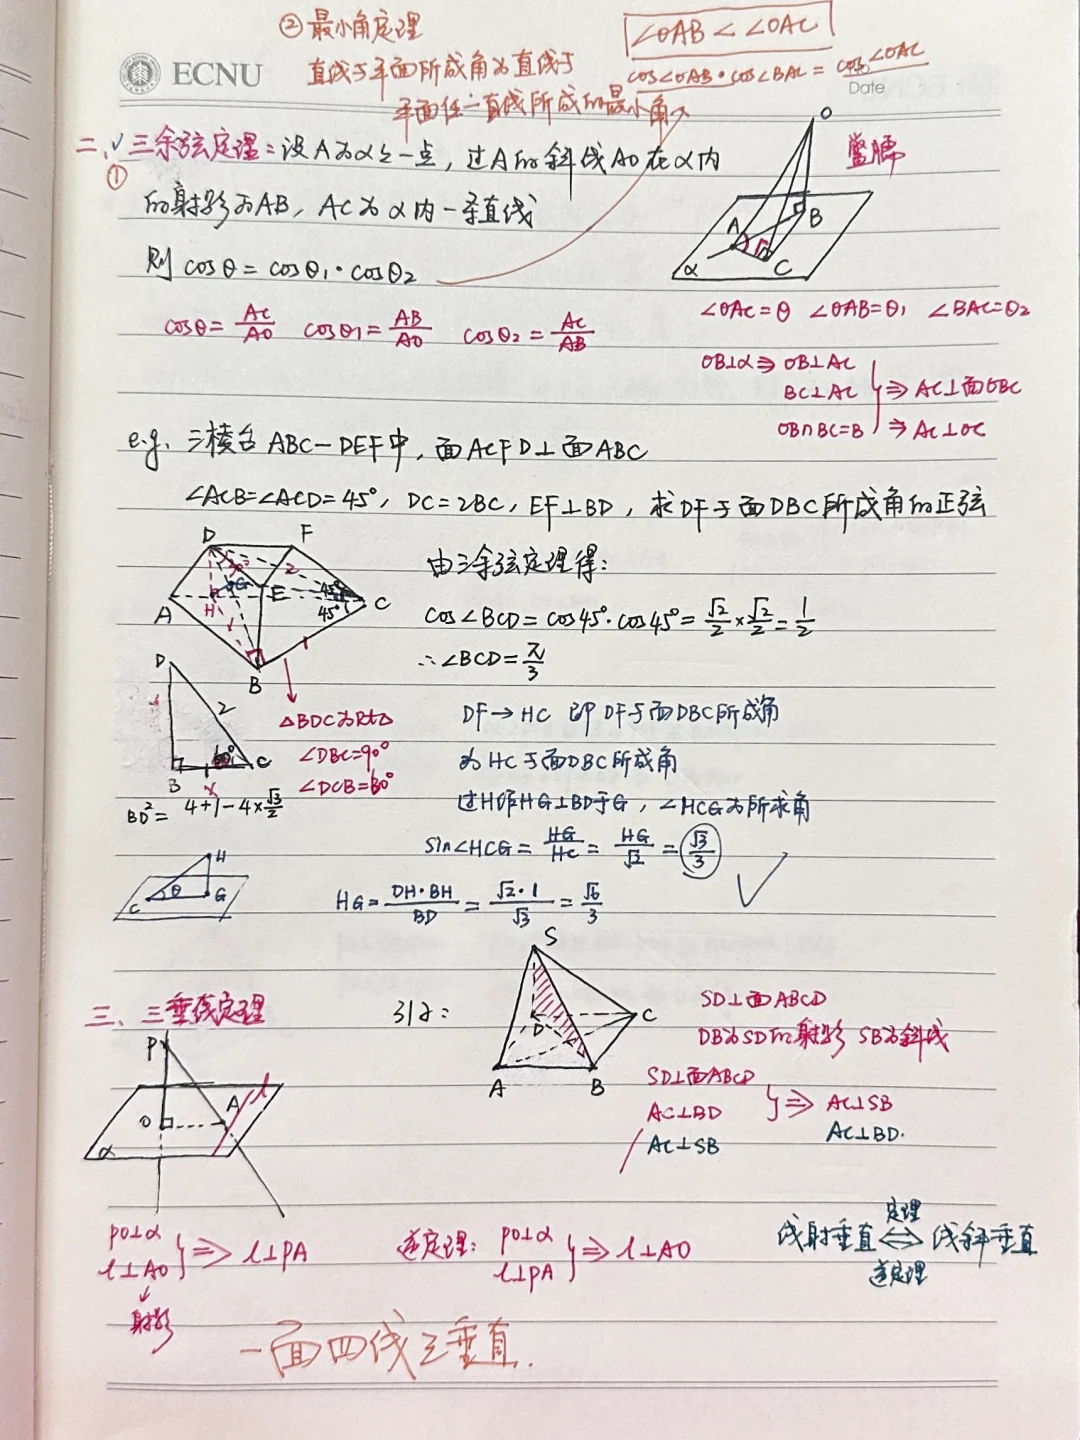 ②最小角定理
∠OAB < ∠OAC
直线与平面所成角为直线与
平面任一直线所成的最小角
cos∠OAB·cos∠BAC = cos∠OAC
ECNU
Date
二、✓三余弦定理：设A为α上一点，过A的斜线AO在α内
①
的射影为AB，AC为α内一条直线
则 cosθ = cosθ₁·cosθ₂
cosθ = AC/AO cosθ₁ = AB/AO cosθ₂ = AC/AB
O
鳖臑
A
B
C
α
∠OAC=θ ∠OAB=θ₁ ∠BAC=θ₂
OB⊥α ⇒ OB⊥AC
BC⊥AC
OB∩BC=B
⇒ AC⊥面OBC
⇒ AC⊥OC
e.g. 三棱台ABC-DEF中，面ACFD⊥面ABC
∠ACB=∠ACD=45°，DC=2BC，EF⊥BD，求DF与面DBC所成角的正弦
D F
A H G E C
2
45°
45°
1
B
由三余弦定理得：
cos∠BCD = cos45°·cos45° = √2/2 × √2/2 = 1/2
∴∠BCD = π/3
D
2
60°
B C
△BDC为Rt△
∠DBC=90°
∠DCB=60°
BD² = 4+1-4×√3/2
DF→HC 即DF与面DBC所成角
为HC与面DBC所成角
过H作HG⊥BD于G，∠HCG为所求角
sin∠HCG = HG/HC = HG/√2 = √3/3
H
C θ G
HG = DH·BH/BD = √2·1/√3 = √6/3
三、三垂线定理
P
O A l
α
引理：
S
D C
A B
SD⊥面ABCD
DB为SD的射影 SB为斜线
SD⊥面ABCD
AC⊥BD
} ⇒ AC⊥SB
AC⊥SB
AC⊥BD.
PO⊥α
l⊥AO
} ⇒ l⊥PA
↓
射影
逆定理： PO⊥α
l⊥PA
} ⇒ l⊥AO
定理
线射垂直 ⇔ 线斜垂直
逆定理
一面四线三垂直.